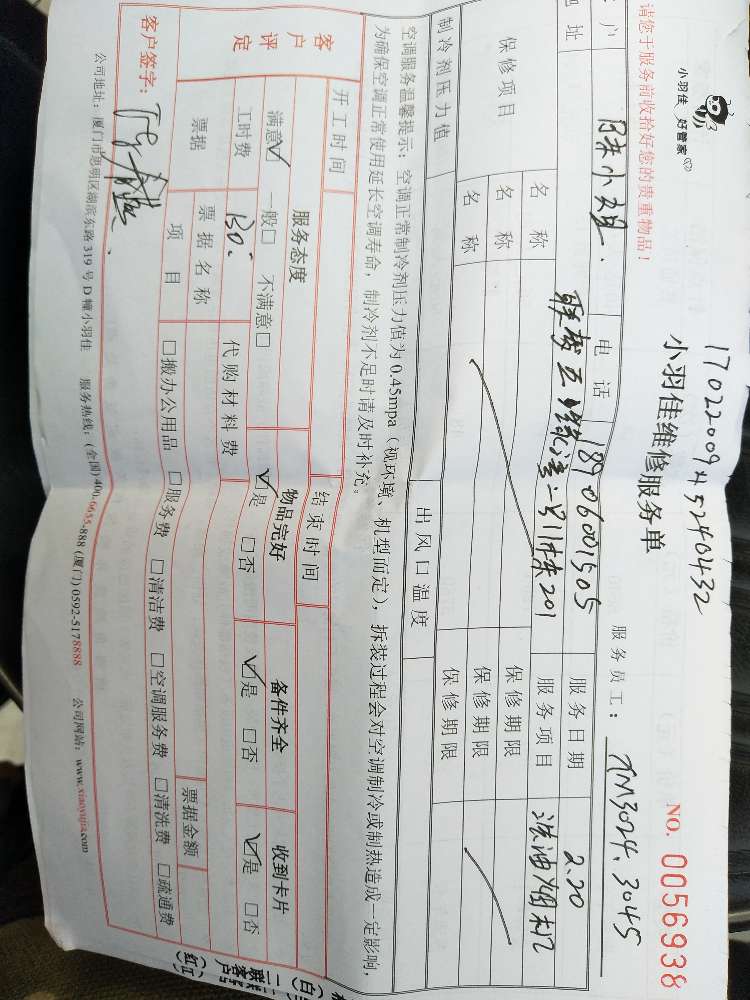 请您于服务前收拾好您的贵重物品!
小羽佳 好管家
17022009452240432
小羽佳维修服务单
NO. 0056938
服务员工: XM3024.3045
户 电话 18906001505 服务日期 2.20
地址 201 服务项目 洗油烟机
保修项目 名称 保修期限
名称 保修期限
名称 保修期限
制冷剂压力值 出风口温度
空调服务温馨提示:空调正常制冷剂压力值为0.45mpa(视环境、机型而定),拆装过程会对空调制冷或制热造成一定影响,
为确保空调正常使用延长空调寿命,制冷剂不足时请及时补充。
开工时间 结束时间
客户评定 服务态度 物品完好 备件齐全 收到卡片
满意☑ 一般□ 不满意□ ☑是 □否 ☑是 □否 ☑是 □否
工时费 130. 代购材料费
票据 票据名称 票据金额
项目 □搬办公用品 □服务费 □清洁费 □空调服务费 □清洗费 □疏通费
客户签字:
公司地址:厦门市思明区湖滨东路319号D幢小羽佳 服务热线:(全国)400-6655-888 (厦门) 0592-5178888 公司网站:www.xiaoyujia.com